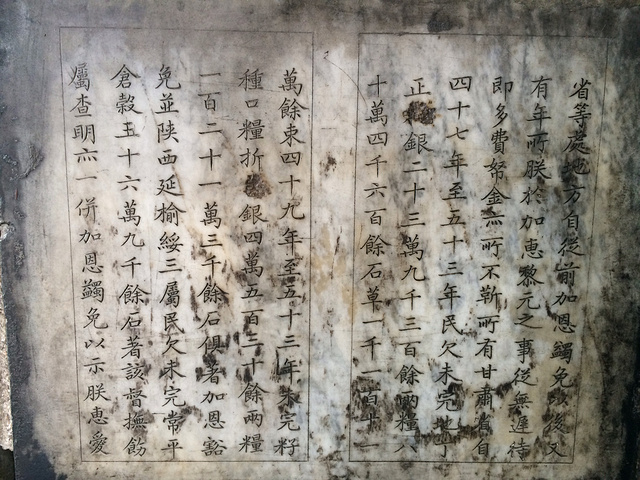 省等處地方自從前加恩蠲免以後又
有年所朕於加惠黎元之事從無遲待
即多費帑金亦所不靳所有甘肅省自
四十七年至五十三年民欠未完地丁
正銀二十三萬九千三百餘兩糧八
十萬四千六百餘石草一千一百十一
萬餘束四十九年至五十三年未完籽
種口糧折銀四萬五百二十餘兩糧
一百二十一萬三千餘石俱著加恩豁
免並陝西延榆綏三屬民欠未完常平
倉穀五十六萬九千餘石著該督撫飭
屬查明亦一併加恩蠲免以示朕惠愛